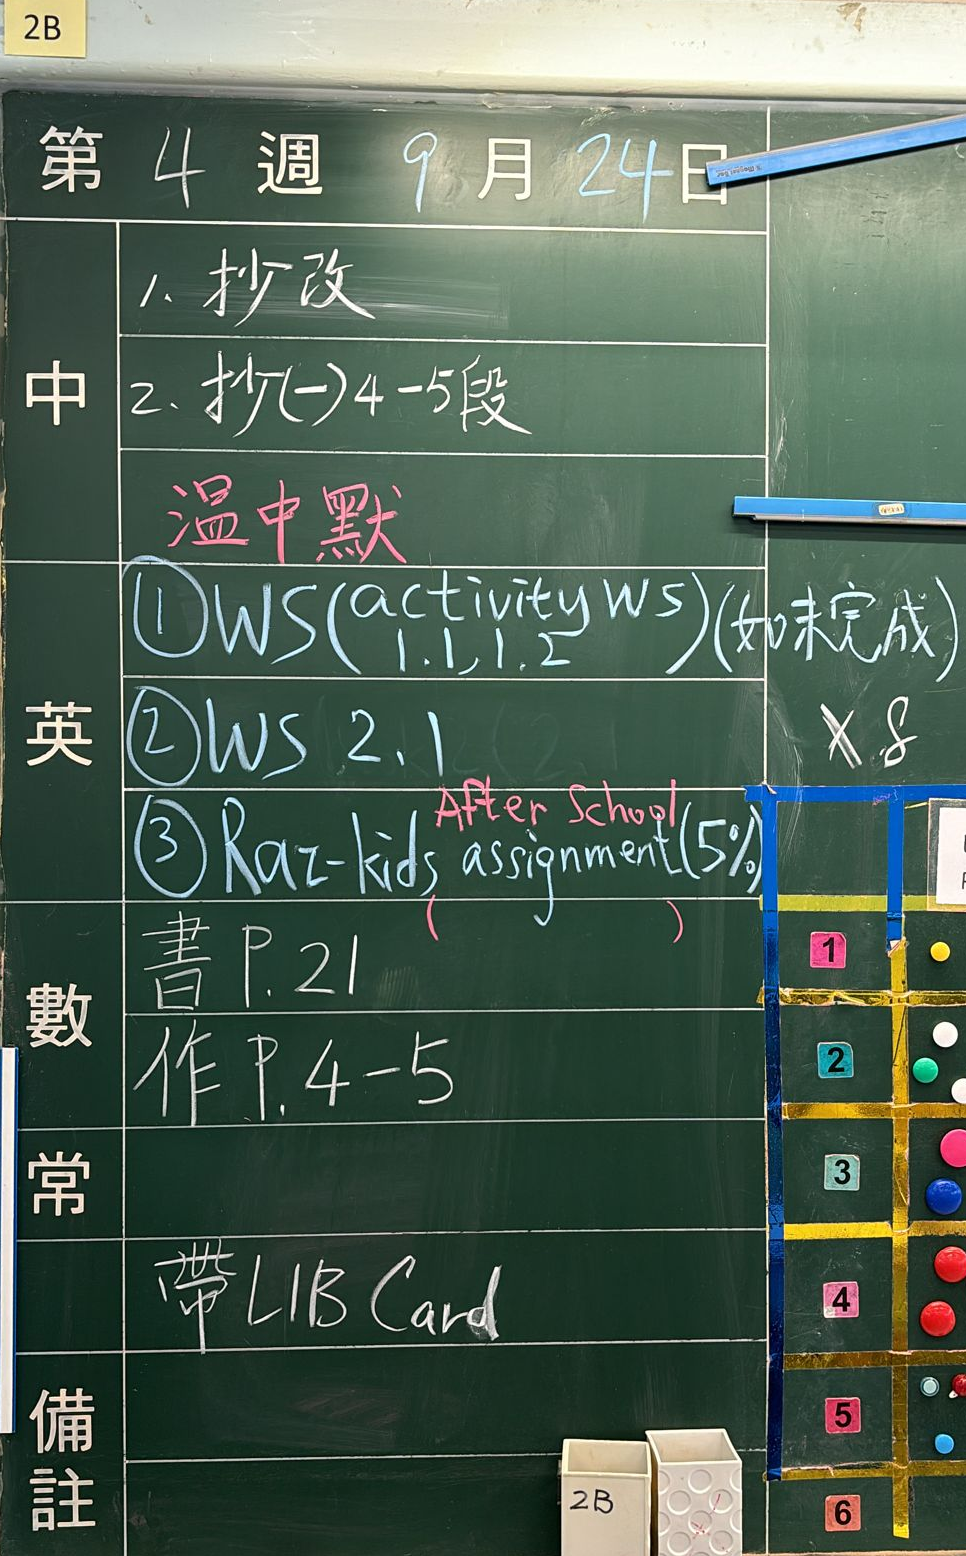 2B
第 4 週 9 月 24 日
中
1. 抄改
2. 抄(一)4-5段
溫中默
英
①WS(activity WS 1.1, 1.2)(如未完成)
②WS 2.1
X 8
After School
③Raz-kids assignment(5%)
(            )
數
書 P.21
作 P.4-5
常
帶 LIB Card
備註
1
2
3
4
5
6
2B